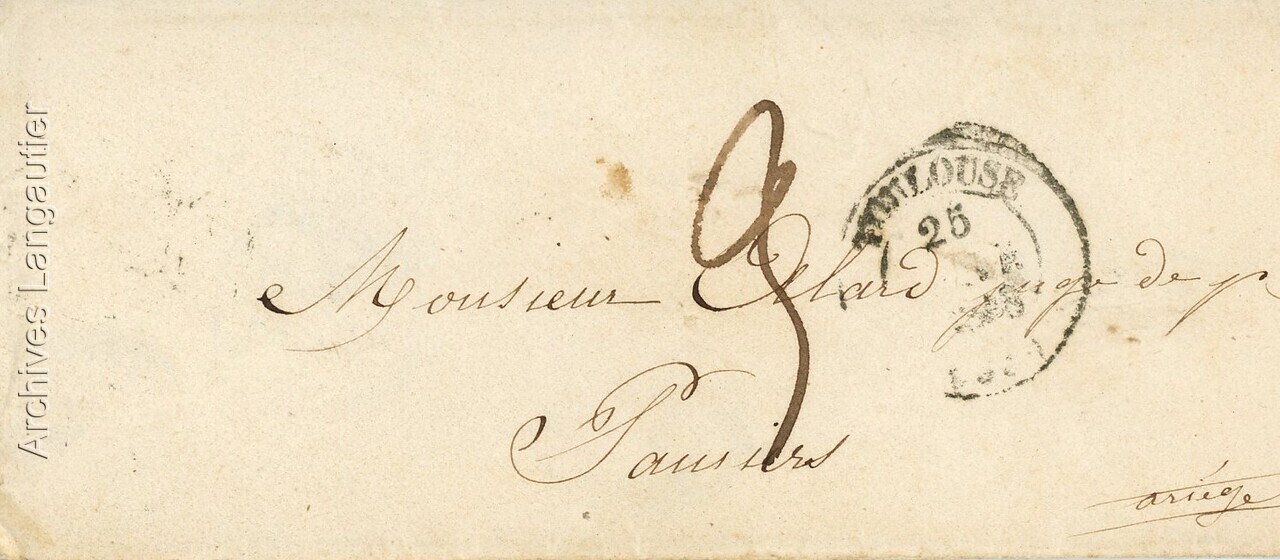 Archives Langautier
TOULOUSE
25
Monsieur juge de p
Pamiers
ariège